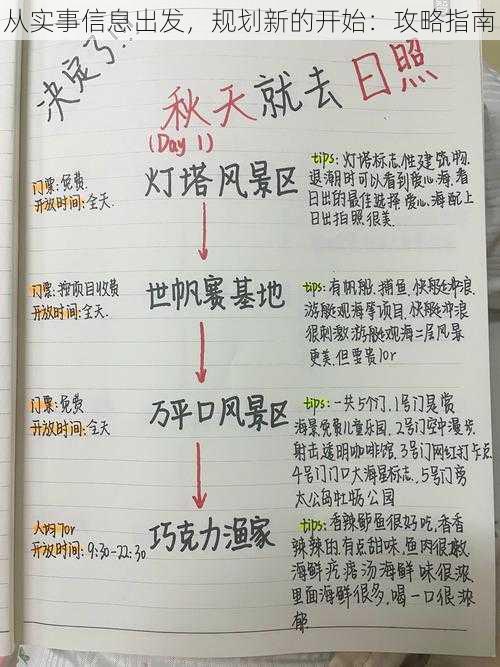 从实事信息出发，规划新的开始：攻略指南
决定了!!
秋天就去日照
(Day 1)
门票:免费.
开放时间:全天.
灯塔风景区
tips:灯塔标志性建筑物.
退潮时可以看到爱心海.看
日出的最佳选择.爱心海配上
日出拍照很美.
门票:按项目收费
开放时间:全天.
世帆赛基地
tips:有帆船.捕鱼.快艇冲浪.
游艇观海等项目.快艇冲浪
很刺激游艇观海二层风景
更美.但要贵10r
门票:免费
开放时间:全天
万平口风景区
tips:一共5个门,1号门是赏
海景免费儿童乐园.2号门空中漫步.
射击透明咖啡馆.3号门网红打卡点
4号门门口大海星标志.,5号门旁
太公岛牡蛎公园
人均70r
开放时间:9:30-22:30
巧克力渔家
tips:香辣鲈鱼很好吃,香香
辣辣的.有点甜味.鱼肉很嫩.
海鲜疙瘩汤海鲜味很浓.
里面海鲜很多,喝一口很浓
郁